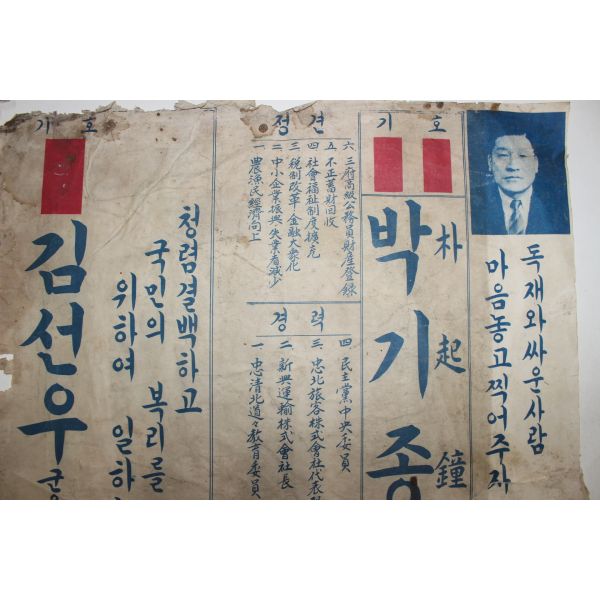 독재와싸운사람
마음놓고찍어주자
기호
朴起鐘
박기종
정견
六 三府高級公務員財産登録
五 不正蓄財回收
四 社會福祉制度擴充
三 税制改革 金融大衆化
二 中小企業振興 失業者減少
一 農漁民經濟向上
경력
四 民主黨中央委員
三 忠北旅客株式會社代表
二 新興運輸株式會社長
一 忠清北道々教育委員
기호
청렴결백하고
국민의 복리를
위하여 일하
김선우
군